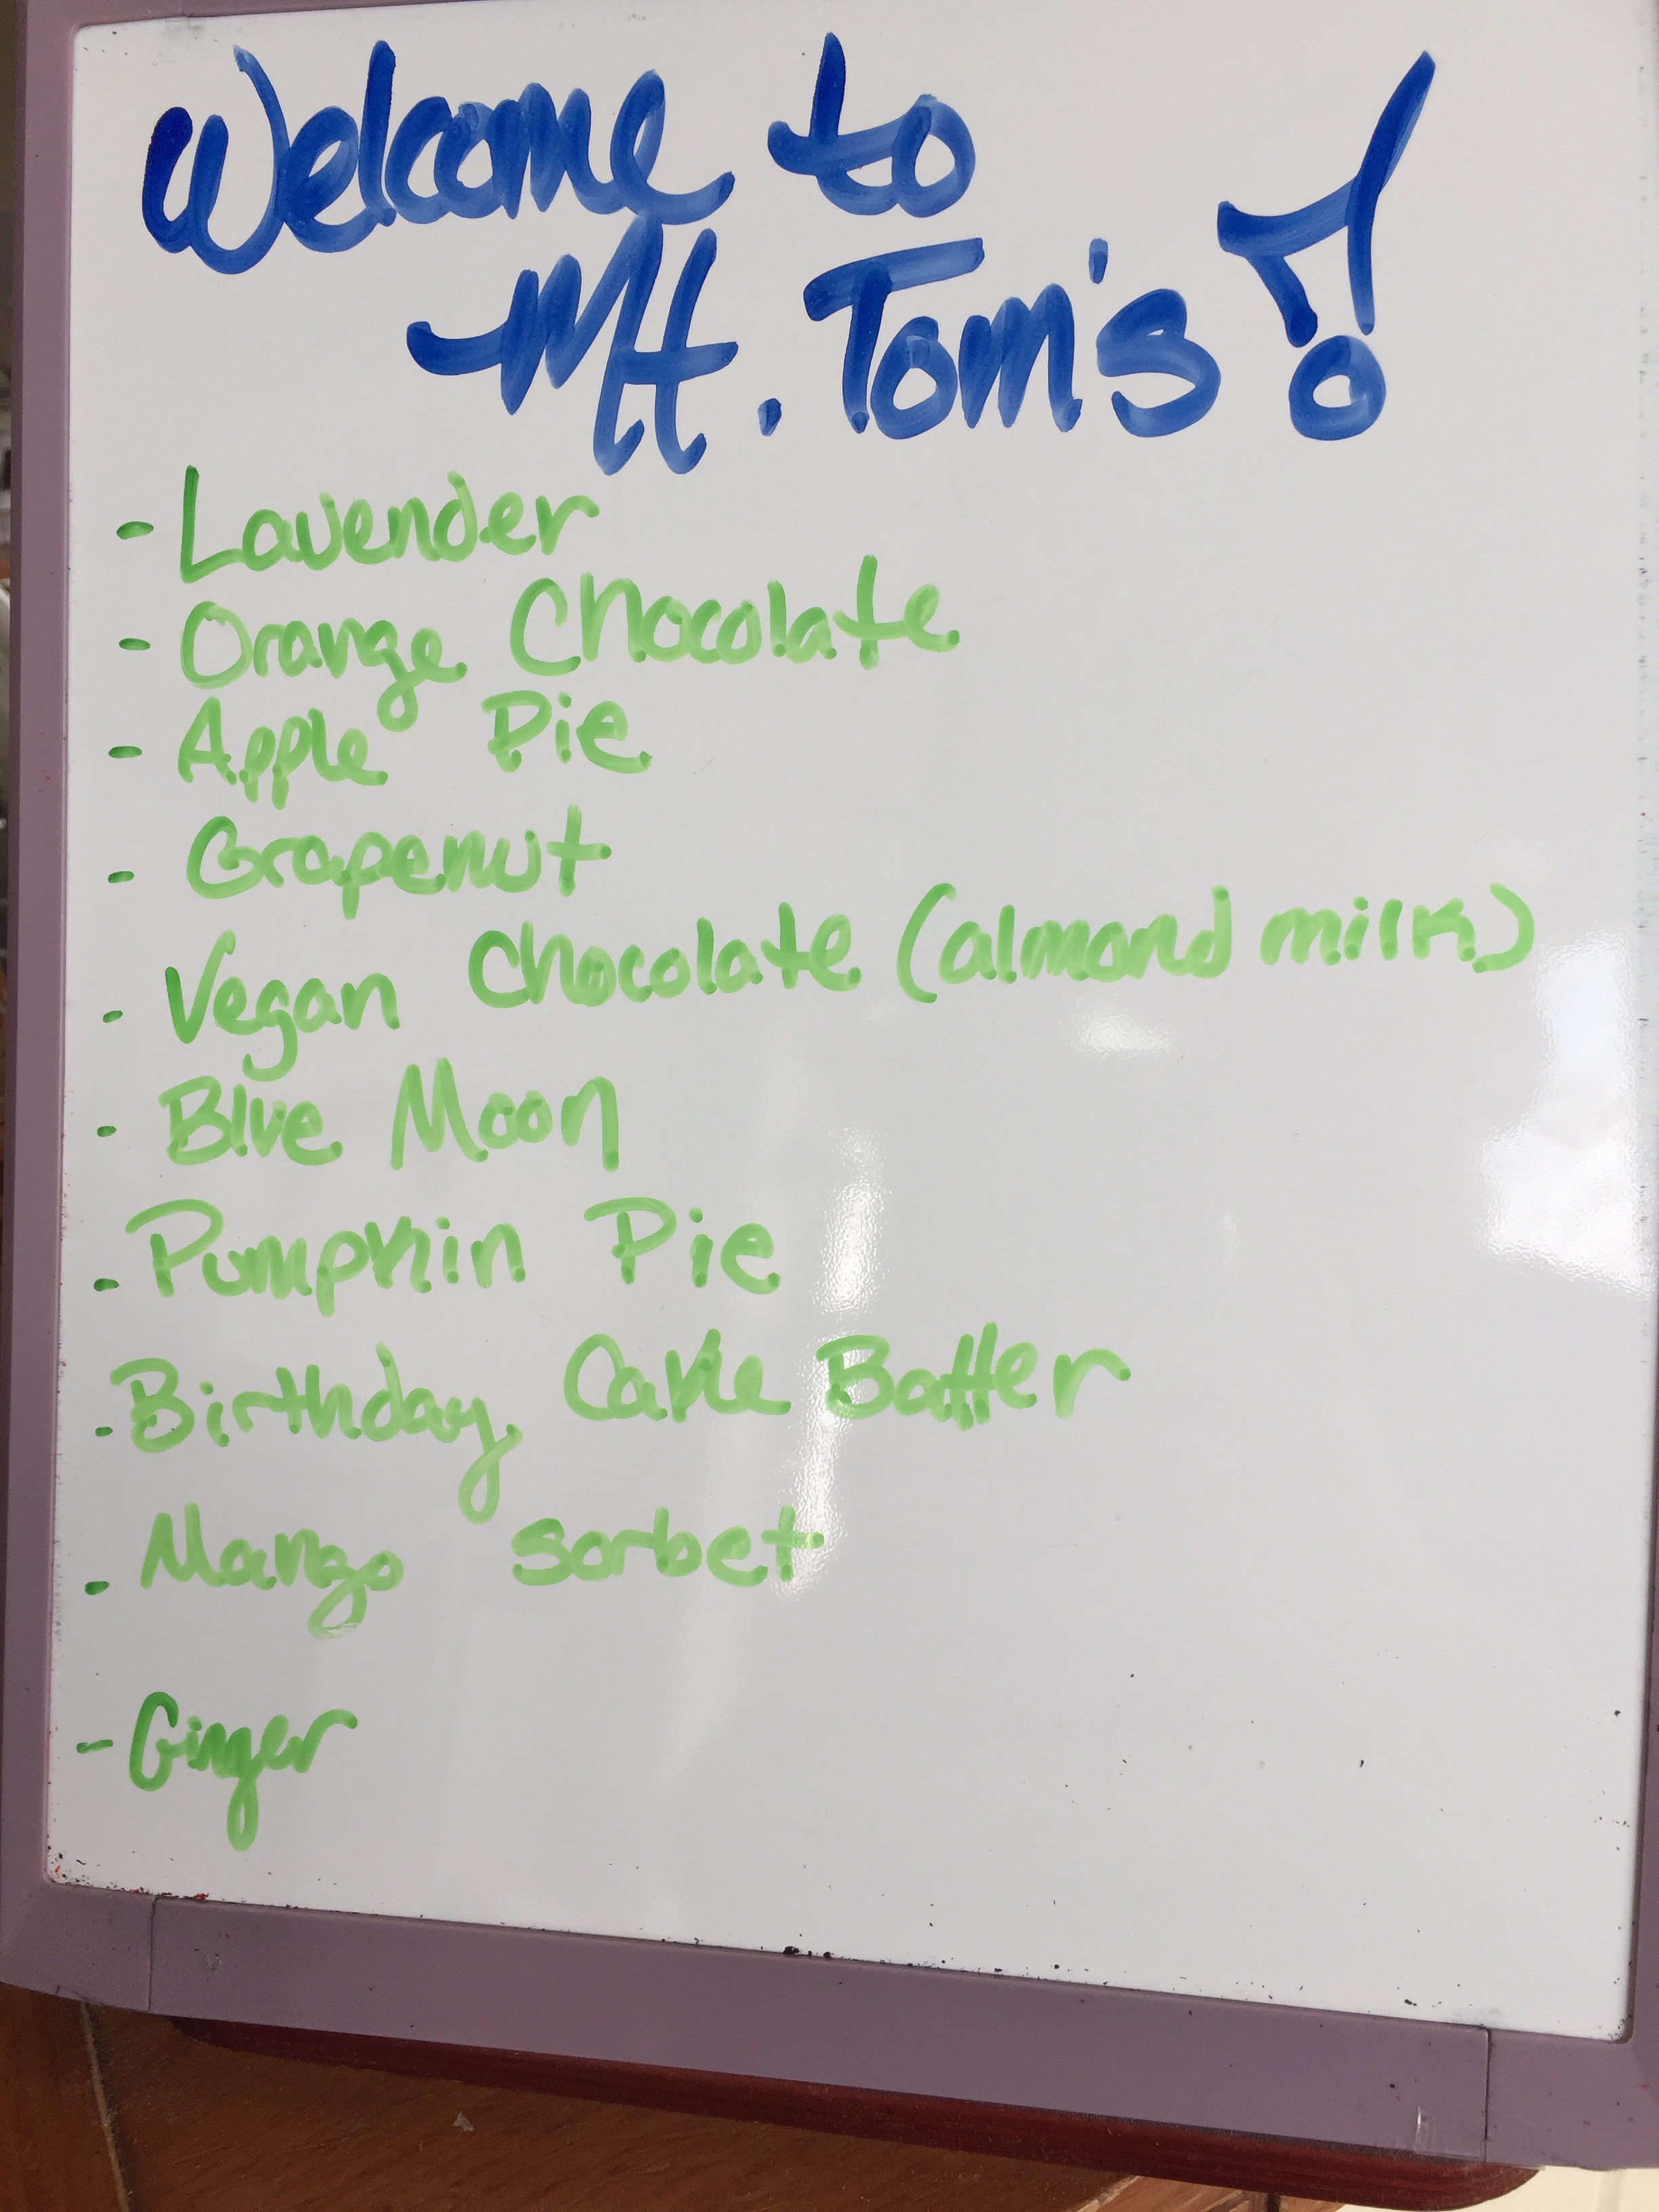 Welcome to
Mt. Tom's!
- Lavender
- Orange Chocolate
- Apple Pie
- Grapenut
- Vegan Chocolate (almond milk)
- Blue Moon
- Pumpkin Pie
- Birthday Cake Batter
- Mango sorbet
- Ginger